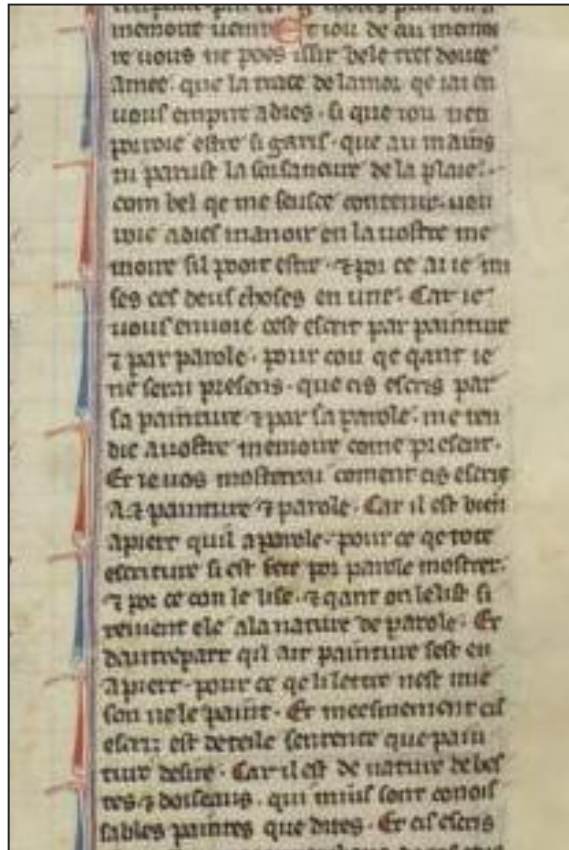 memoire vient Et iou de au memoi
re vous ne poes issir bele tres douce
amee. que la trace de lamor qe iai en
vous empirt adies. si que iou nen
poroie estre si garis. que au mains
ni parust la soursaneure de la plaie.
com bel qe me seusce contenir. vou
roie adies manoir en la vostre me
moire sil pooit estre. ⁊ por ce ai ie mi
ses ces deus choses en une. Car ie
vous envoie cest escrit par painture
⁊ par parole. pour cou qe qant ie
ne serai presens. que cis escris par
sa painture ⁊ par sa parole. me ren
die a vostre memoire come present.
Et ie vos mosterrai coment cis escris
a ⁊ painture ⁊ parole. Car il est bien
apiert quil a parole. pour ce qe tote
escriture si est fete por parole mostrer.
⁊ por ce con le lise. ⁊ qant on le list si
revient ele a la nature de parole. Et
dautrepart qil ait painture sest en
apiert. pour ce qe li lettre nest mie
son ne le paint. Et meesmement cis
escriz est de teile sentence que pain
ture desire. Car il est de nature de bes
tes ⁊ doiseaus. qui mius sont conois
sables paintes que dites. Et cis escris